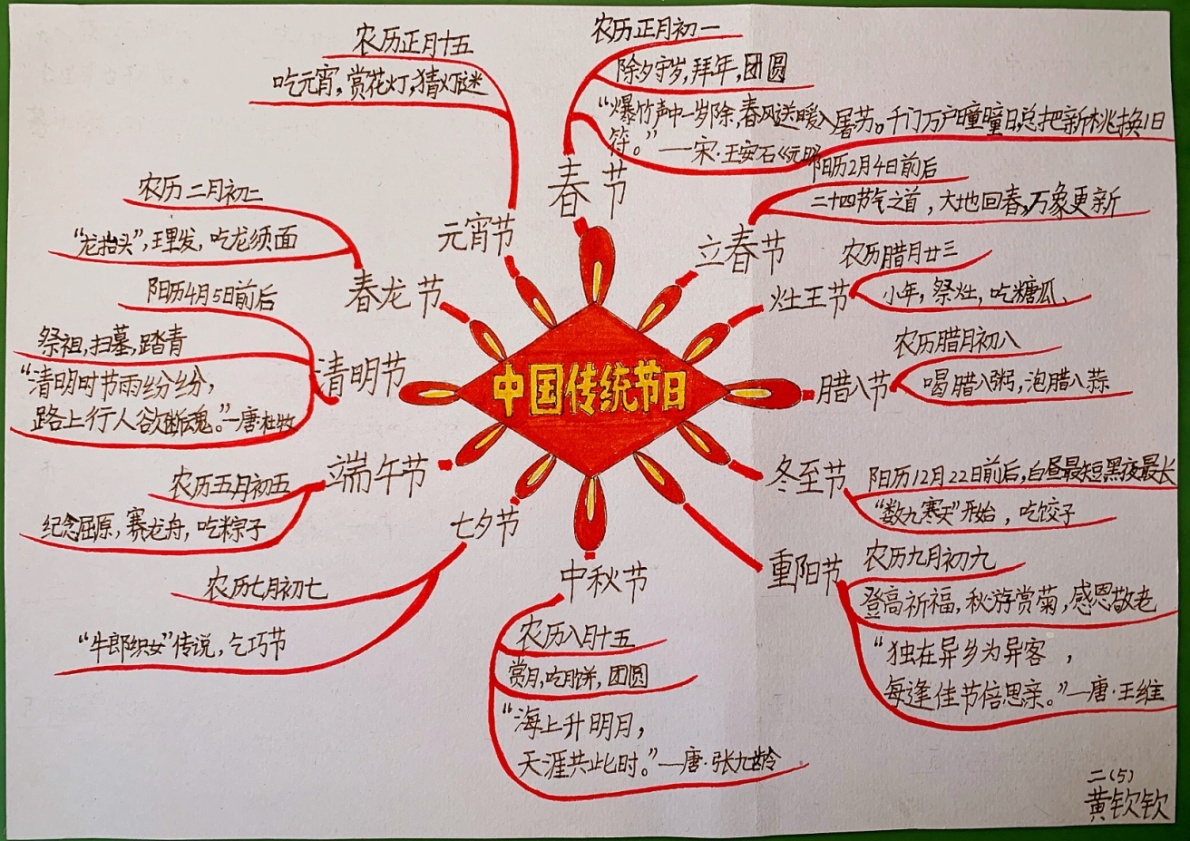 中国传统节日
春节
农历正月初一
除夕守岁,拜年,团圆
“爆竹声中一岁除,春风送暖入屠苏。千门万户曈曈日,总把新桃换旧
符。”——宋·王安石《元日》
立春节
阳历2月4日前后
二十四节气之首,大地回春,万象更新
灶王节
农历腊月廿三
小年,祭灶,吃糖瓜、
腊八节
农历腊月初八
喝腊八粥,泡腊八蒜
冬至节
阳历12月22日前后,白昼最短,黑夜最长
“数九寒天”开始,吃饺子
重阳节
农历九月初九
登高祈福,秋游赏菊,感恩敬老
“独在异乡为异客,
每逢佳节倍思亲。”—唐·王维
中秋节
农历八月十五
赏月,吃月饼,团圆
“海上升明月,
天涯共此时。”—唐·张九龄
七夕节
农历七月初七
“牛郎织女”传说,乞巧节
端午节
农历五月初五
纪念屈原,赛龙舟,吃粽子
清明节
阳历4月5日前后
祭祖,扫墓,踏青
“清明时节雨纷纷,
路上行人欲断魂。”—唐·杜牧
春龙节
农历二月初二
“龙抬头”,理发,吃龙须面
元宵节
农历正月十五
吃元宵,赏花灯,猜灯谜
二(5)
黄钦钦